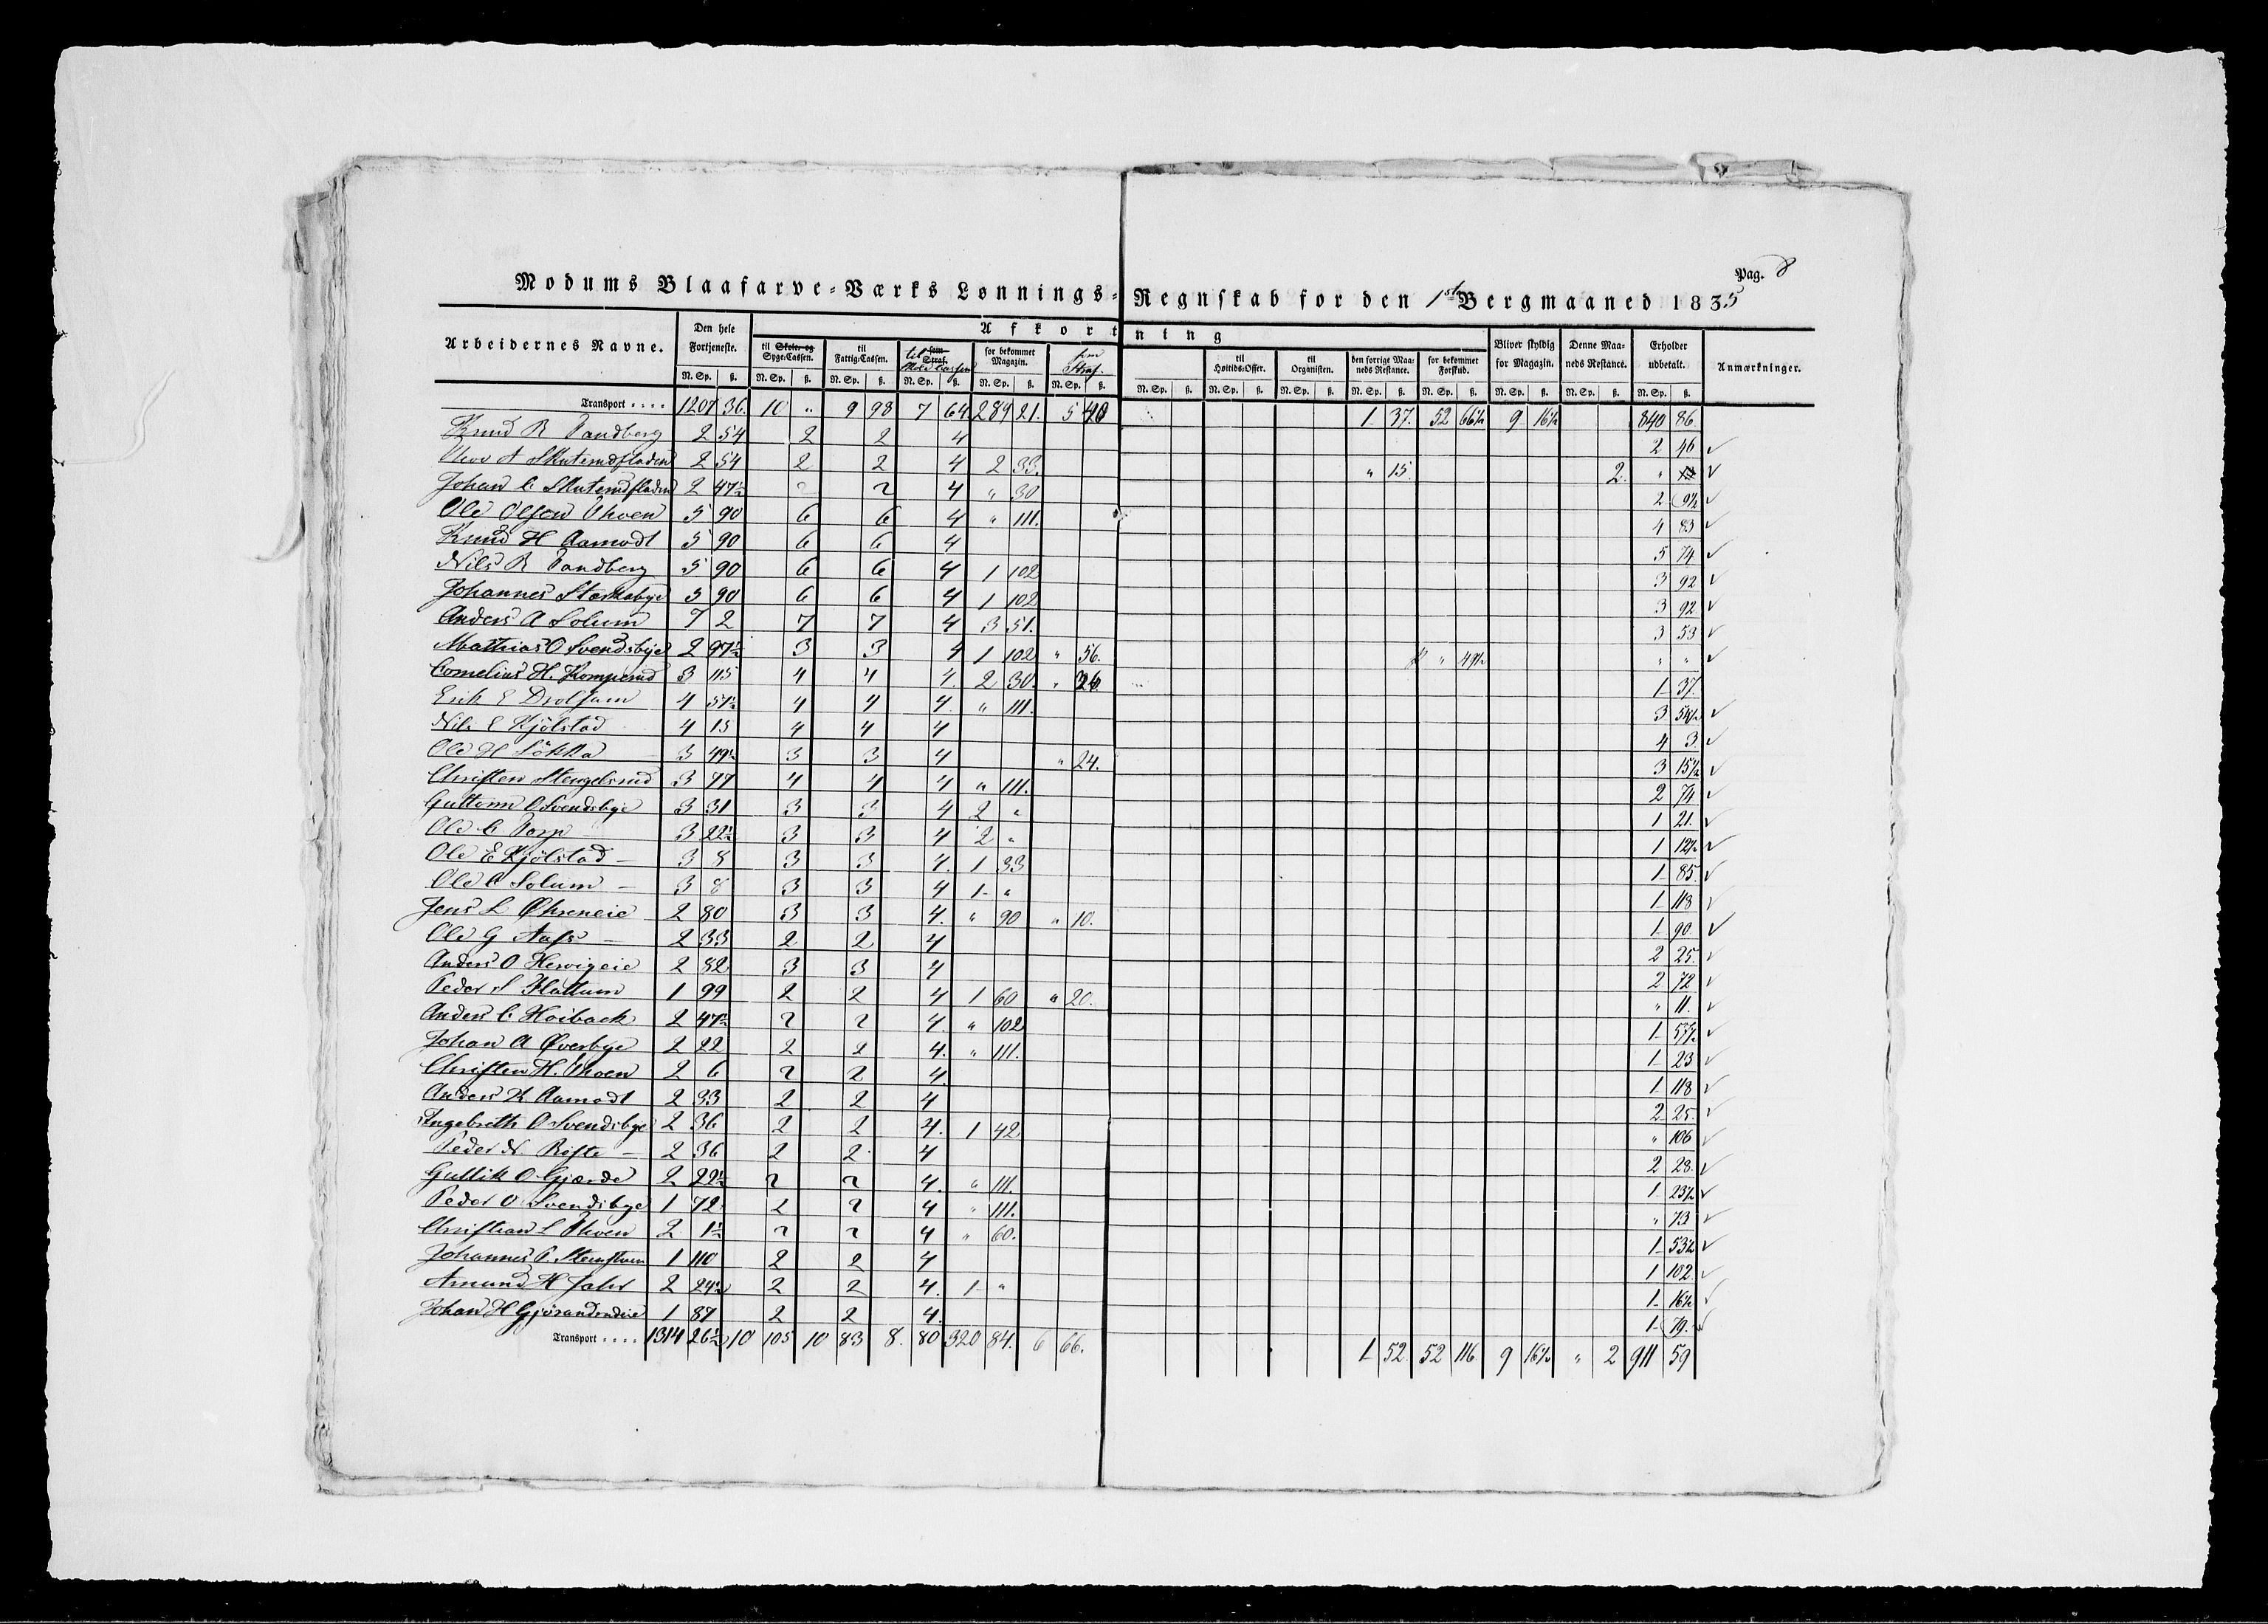 Pag. 8
Modums Blaafarve-Værks Lønnings-Regnskab for den 1ste Bergmaaned 1835
Arbeidernes Navne. | Den hele Fortjeneste. | Afkortning | Bliver skyldig for Magazin. | Denne Maaneds Restance. | Erholder udbetalt. | Anmærkninger.
til Skole- og Syge-Cassen. | til Fattig-Cassen. | til Skole Cassen | for bekommet Magazin. | som Straf. | til Høitids-Offer. | til Organisten. | den forrige Maaneds Restance. | for bekommet Forskud.
N. Sp. | ß.
Transport .... 1207 36. 10 " 9 98 7 64. 289 21. 5 40 1 37. 52 66½ 9 16½ 840 86.
Knud R Tandberg 2 54 2 2 4 2 46 ✓
A Skuterudfladen 2 54 2 2 4 2 33. " 15. 2. " ✓
Johan C Skuterudfladen 2 47½ 2 2 4 " 30 2 9½ ✓
Ole Olsen Thoen 5 90 6 6 4 " 111. 4 83 ✓
Knud H Aamodt 5 90 6 6 4 5 74 ✓
Nils R Tandberg 5 90 6 6 4 1 102 3 92 ✓
Johannes Stærkebye 5 90 6 6 4 1 102 3 92 ✓
Anders A Solum 7 2 7 7 4 3 51. 3 53 ✓
Mathias O Svendsbye 2 97½ 3 3 4 1 102 " 56. " 49½ " " ✓
Cornelius H. Komperud 3 115 4 4 4. 2 30. " 26 1 37.
Erik E Drolsum 4 57½ 4 4 4 " 111. 3 54½ ✓
Nils E Kjölstad 4 15 4 4 4 4 3 ✓
Ole H Løkka 3 49½ 3 3 4 " 24. 3 15½ ✓
Christen Stengelsrud 3 77 4 4 4 " 111. 2 74 ✓
Guttorm O Svendsbye 3 31 3 3 4 2 " 1 21. ✓
Ole C Torp 3 22½ 3 3 4 2 " 1 12½ ✓
Ole E Kjölstad – 3 8 3 3 4. 1 33 1 85. ✓
Ole C Solum – 3 8 3 3 4 1 " 1 118 ✓
Jens L Øhreneie 2 80 3 3 4. " 90 " 10. 1 90. ✓
Ole G Aass – 2 33 2 2 4 2 25. ✓
Anders O Hervigeie 2 82 3 3 4 2 72 ✓
Peder S Flattum 1 99 2 2 4 1 60 " 20. " 11. ✓
Anders C Hoiback 2 47½ 2 2 4. " 102 1 57½ ✓
Johan A Øverbye 2 22 2 2 4. " 111. 1 23 ✓
Christen H. Thoen 2 6 2 2 4. 1 118 ✓
Anders K Aamodt 2 33 2 2 4 2 25. ✓
Engebreth O Svendsbye 2 36 2 2 4. 1 42 " 106 ✓
Peder N Röfte – 2 36 2 2 4 2 28. ✓
Gullik O Gjærde 2 22½ 2 2 4. " 111. 1 23½ ✓
Peder O Svendsbye 1 72 2 2 4 " 111. " 73 ✓
Christian L Thoen 2 1½ 2 2 4 " 60. 1 53½ ✓
Johannes P. 1 110 2 2 4 1 102. ✓
Amund H Jahr 2 24½ 2 2 4. 1 " 1 16½ ✓
Johan H Gjörandrudeie 1 87 2 2 4. 1 79. ✓
Transport .... 1314 26½ 10 105 10 83 8. 80 320 84. 6 66. 1 52. 52 116 9 16½ " 2 911 59